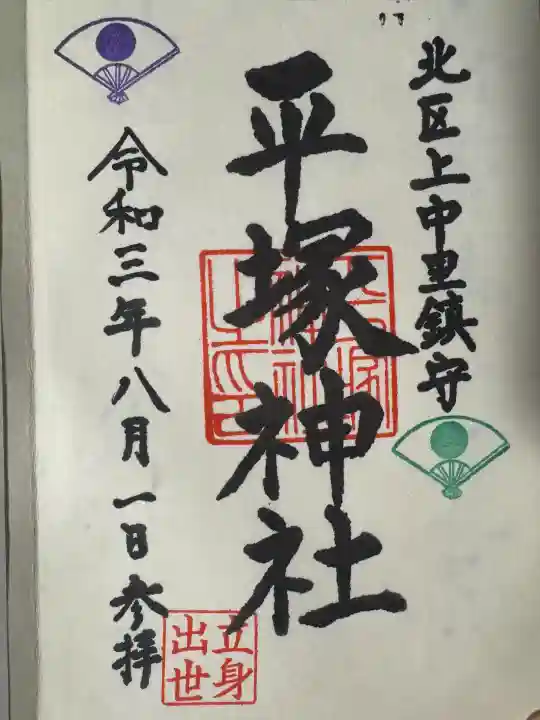 北区上中里鎮守
平塚神社
平塚
神社
之印
令和三年八月一日参拝
立身
出世